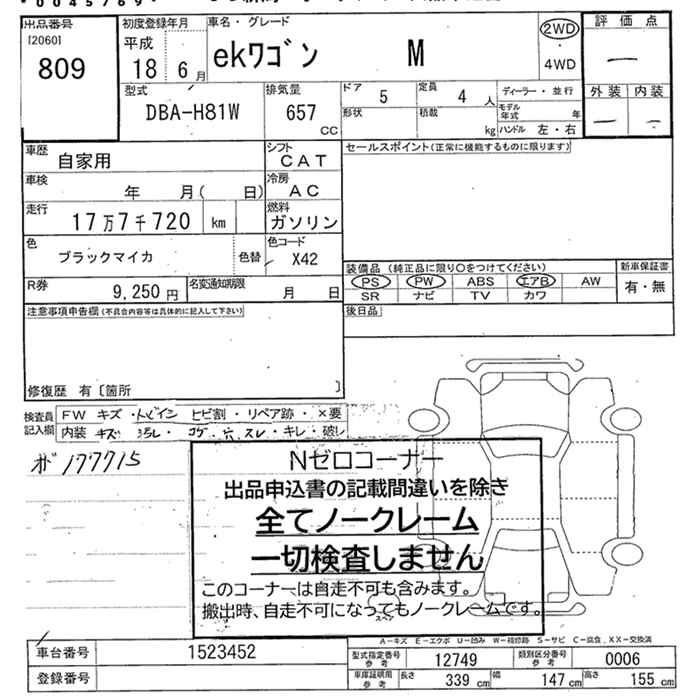 出品番号
[2060]
809
初度登録年月
平成
18 6月
車名・グレード
ekワゴン M
2WD
・
4WD
評価点
外装 内装
型式
DBA-H81W
排気量
657
CC
ドア
5
定員
4 人
ディーラー・並行
形状
積載
kg
モデル年式 年
ハンドル 左・右
車歴
自家用
シフト
CAT
セールスポイント(正常に機能するものに限ります)
車検
年 月( 日)
冷房
AC
走行
17万7千720 km
燃料
ガソリン
色
ブラックマイカ
色替
色コード
X42
装備品 (純正品に限り〇をつけてください)
新車保証書
PS PW ABS エアB AW
有・無
SR ナビ TV カワ
R券
9,250 円
名変通知期限
月 日
後日品
注意事項申告欄(不具合内容等は具体的に記入して下さい)
修復歴 有[箇所 ]
検査員記入欄
FW キズ・トビイシ ヒビ割・リペア跡・×要
内装 キズ・ヨゴレ・コゲ・穴・スレ・キレ・破レ
ガ177715
Nゼロコーナー
出品申込書の記載間違いを除き
全てノークレーム
一切検査しません
このコーナーは自走不可も含みます。
搬出時、自走不可になってもノークレームです。
スペア
A-キズ E-エクボ U-凹み W-補修跡 S-サビ C-腐食、XX-交換済
車台番号 1523452
型式指定番号 参考 12749
類別区分番号 参考 0006
登録番号
車庫証明用 参考
長さ 339 cm
幅 147 cm
高さ 155 cm